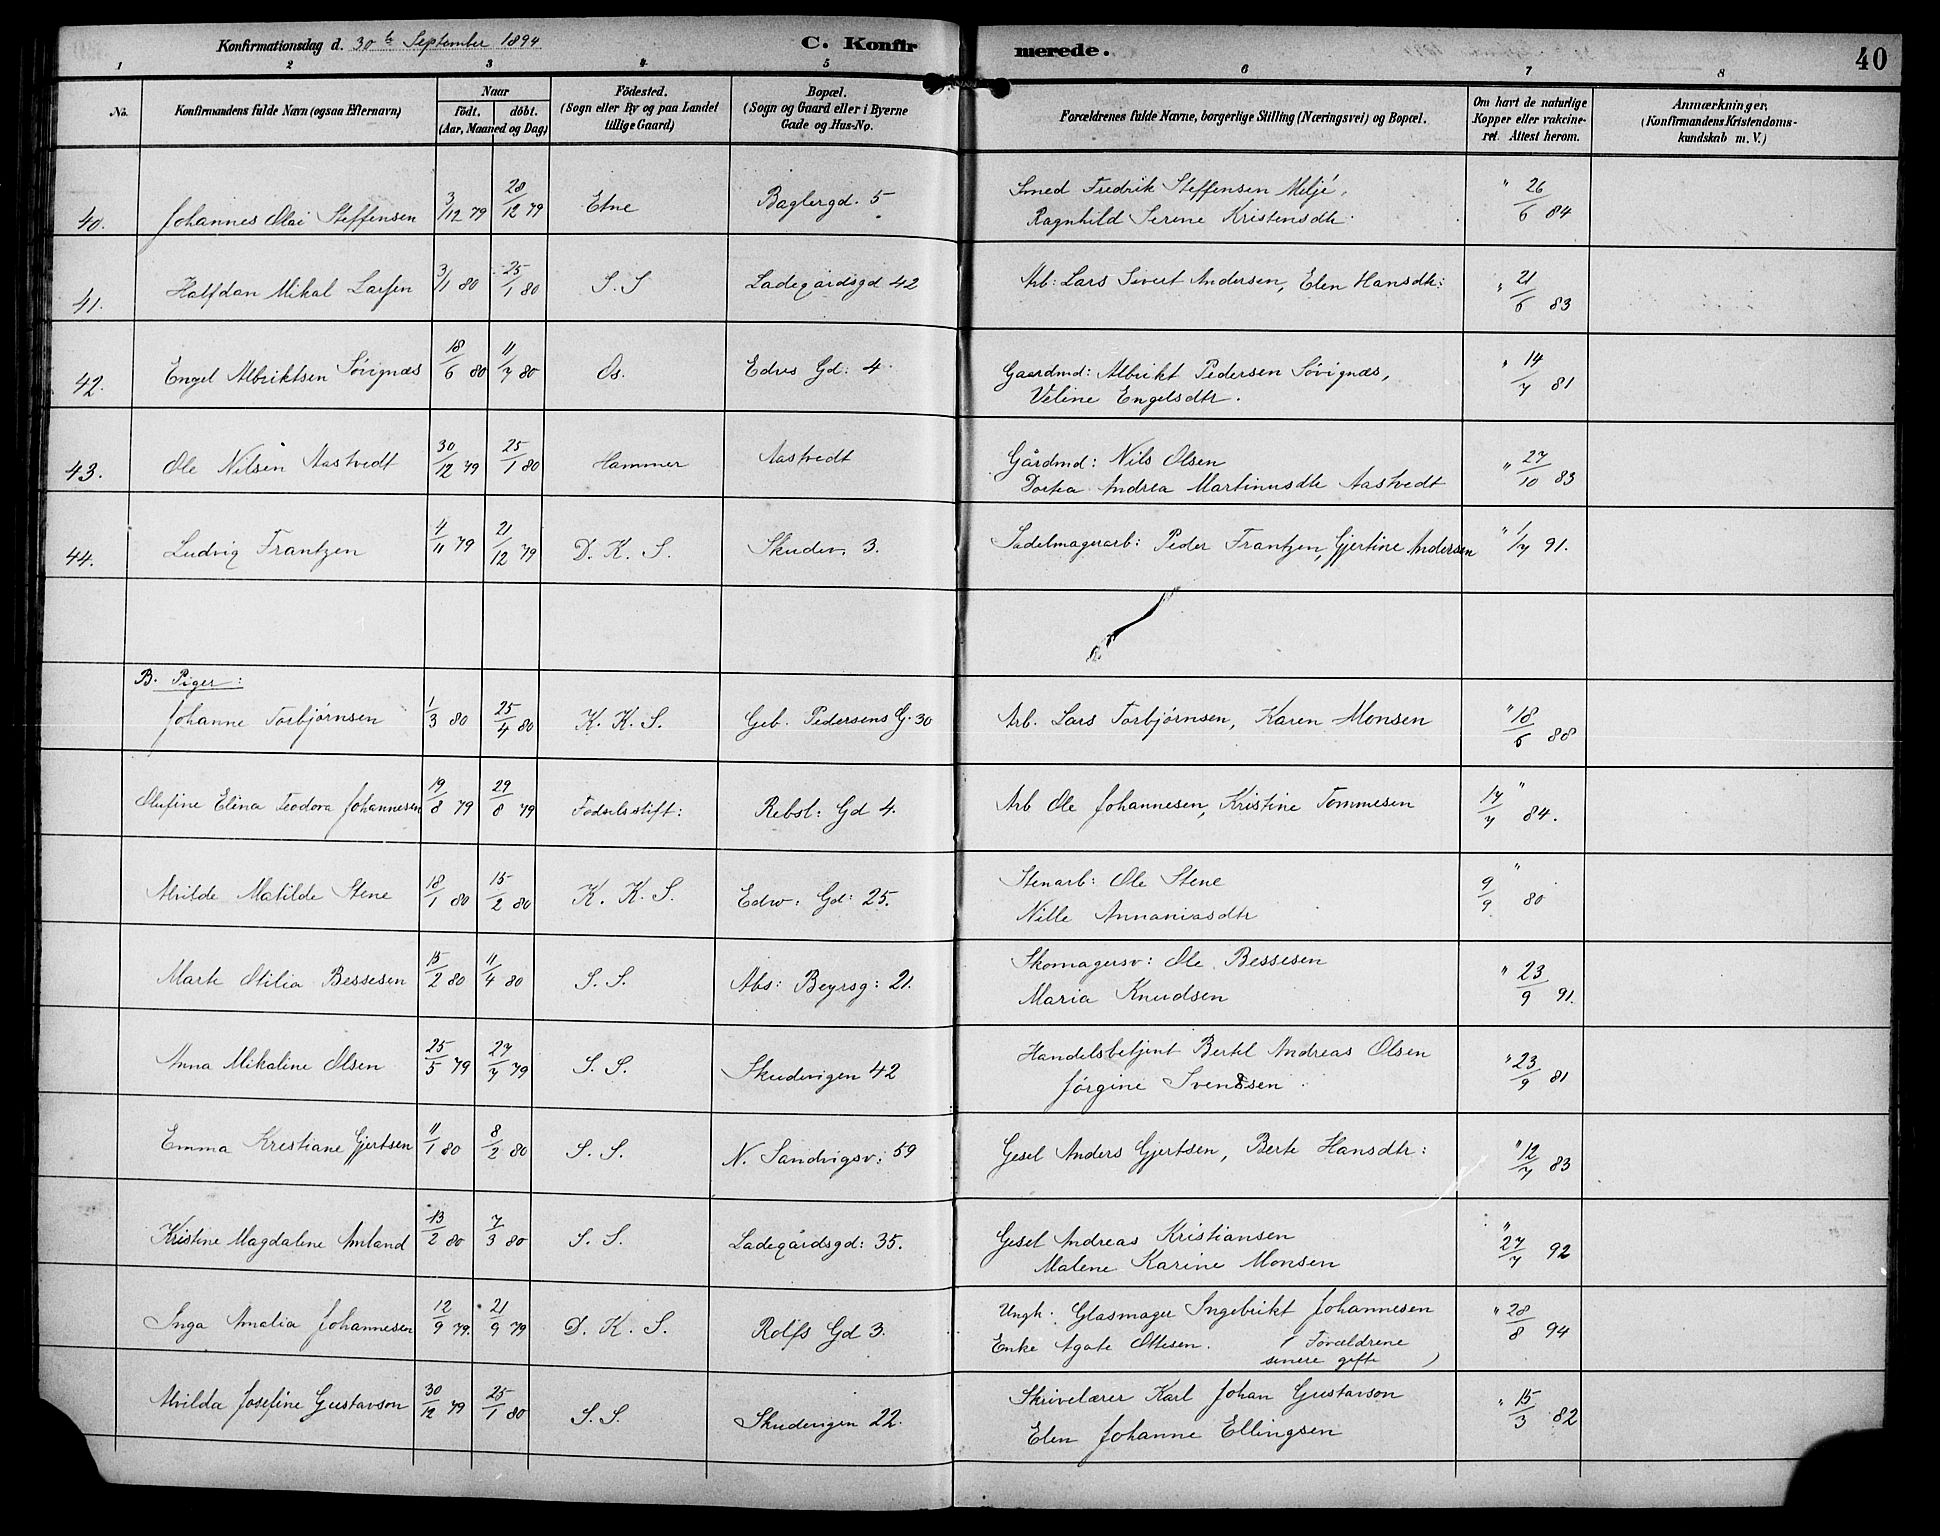 Konfirmationsdag d. 30te September 1894 C. Konfirmerede. 40
1 2 3 4 5 6 7 8
No. Konfirmandens fulde Navn (ogsaa Efternavn) Naar født. døbt. (Aar, Maaned og Dag) Födested. (Sogn eller By og paa Landet tillige Gaard) Bopæl. (Sogn og Gaard eller i Byerne Gade og Hus-No. Forældrenes fulde Navne, borgerlige Stilling (Næringsvei) og Bopæl. Om havt de naturlige Kopper eller vakcineret. Attest herom. Anmærkninger. (Konfirmandens Kristendomskundskab m. V.)
40. Johannes Olai Steffensen 3/12 79 28/12 79 Etne Baglergd. 5 Smed Fredrik Steffensen Miljé, " 26/6 84
Ragnhild Serene Kristensdtr.
41. Halfdan Mikal Larsen 3/1 80 25/1 80 S. S Ladegårdsgd 42 Arb: Lars Sivert Andersen, Elen Hansdtr: " 21/6 83
42. Engel Albriktsen Søvignæs 18/6 80 11/7 80 Os. Edvs Gd: 4. Gaardmd: Albrikt Pedersen Søvignæs, " 14/7 81
Veline Engelsdtr.
43. Ole Nilsen Aastvedt 30/12 79 25/1 80 Hammer Aastvedt Gårdmd: Nils Olsen " 27/10 83
Dortea Andrea Martinusdtr Aastvedt
44. Ludvig Frantzen 4/11 79 21/12 79 D. K. S. Skudev. 3. Sadelmagerarb: Peder Frantzen, Gjertine Andersen " 1/7 91.
B. Piger:
Johanne Torbjørnsen 1/3 80 25/4 80 K. K. S. Geb. Pedersens G. 30 Arb. Lars Torbjørnsen, Karen Monsen " 18/6 88
Olufine Elina Teodora Johannesen 19/8 79 29/8 79 Fødselsstift: Rebsl: Gd 4. Arb Ole Johannesen, Kristine Tommesen 17/7 " 84.
Alvilde Matilde Stene 18/1 80 15/2 80 K. K. S Edw: Gd: 25. Stenarb: Ole Stene 9/9 " 80
Nille Annaniasdtr
Marte Otilia Bessesen 15/2 80 11/4 80 S. S. Abs: Beyrsg: 21. Skomagersv: Ole Bessesen " 23/9 91.
Maria Knudsen
Anna Mikaline Olsen 25/5 79 27/7 79 S. S. Skudevigen 42 Handelsbetjent Bertel Andreas Olsen " 23/9 81
Jørgine Svendsen
Emma Kristiane Gjertsen 11/1 80 8/2 80 S. S. N. Sandvigsv: 59 Gesel Anders Gjertsen, Berte Hansdtr: " 12/7 83
Kristine Magdalene Amland 13/2 80 7/3 80 S. S. Ladegårdsgd: 35. Gesel Andreas Kristiansen " 27/7 92
Malene Karine Monsen
Inga Amalia Johannesen 12/9 79. 21/9 79 D. K. S. Rolfs Gd 3. Ungk: Glasmager Ingebrikt Johannesen " 28/8 94
Enke Agate Ottesen. (Forældrene
senere gifte)
Alvilda Josefine Gustavson 30/12 79 25/1 80 S. S. Skudevigen 22. Skrivelærer Karl Johan Gustavson " 15/3 82
Elen Johanne Ellingsen